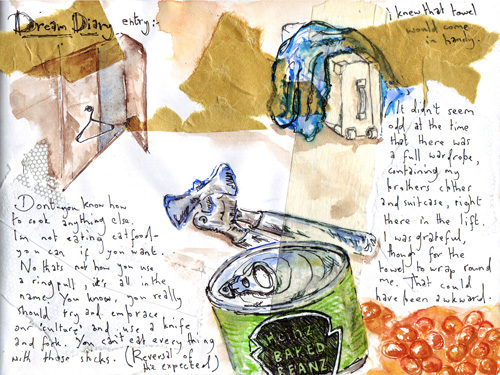 Dream Diary entry:-
I knew that towel
would come
in handy.
It didn't seem
odd at the time
that there was
a full wardrobe,
containing my
brothers clothes
and suitcase, right
there in the lift.
I was grateful,
though, for the
towel to wrap round
me. That could
have been awkward.
Don't you know how
to cook anything else.
I'm not eating catfood-
you can if you want.
No thats not how you use
a ring pull it's all in the
name. You know, you really
should try and embrace
our 'culture' and use a knife
and fork. You can't eat everything
with those sticks. (Reversal of
the expected)
HEINZ
BAKED
BEANZ